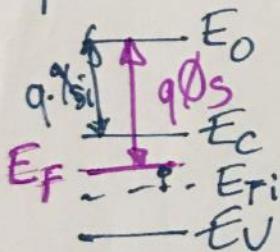 E₀
q·χsi qØs
E_C
E_F
E_Fi
E_V